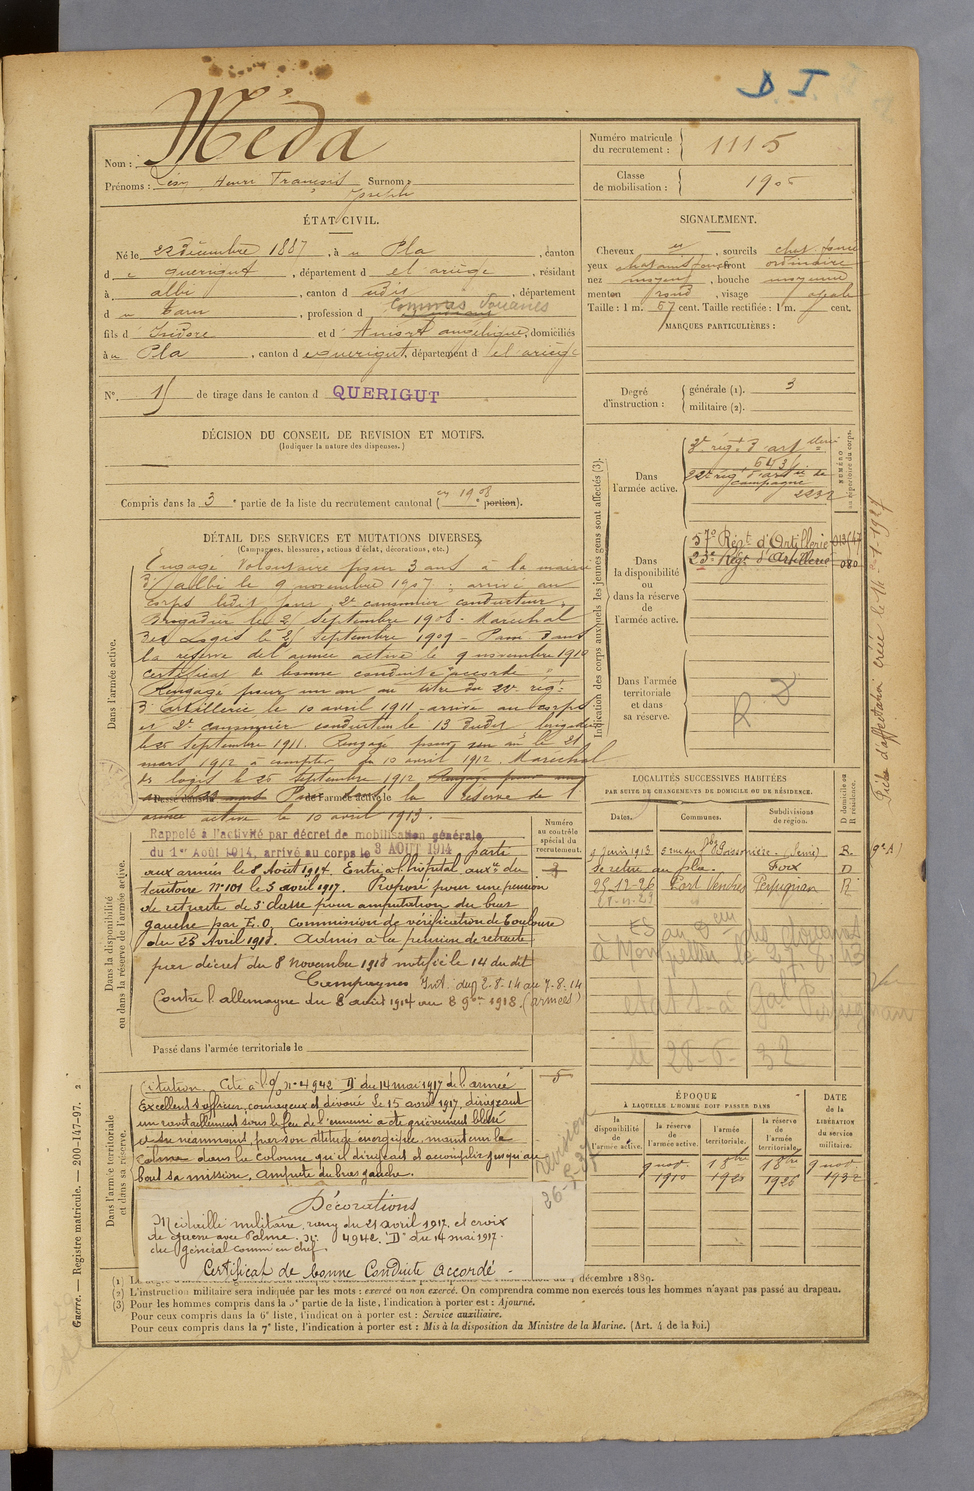 D. I.
Nom : Méda
Prénoms : Léon Henri François Surnom :
Joseph
Numéro matricule
du recrutement : 1115
Classe
de mobilisation : 1905
ÉTAT CIVIL.
Né le 22 Décembre 1887, à u Pla, canton
d e querigut, département d el ariège, résidant
à albi, canton d udit, département
d u Tarn, profession d Commis Douanes
fils d' Isidore et d' Amort angélique, domiciliés
à u Pla, canton d e querigut, département d el ariège
N°. 15 de tirage dans le canton d QUERIGUT
SIGNALEMENT.
Cheveux, sourcils chat. foncé
yeux chatains foncé front ordinaire
nez moyen, bouche moyenne
menton rond, visage ovale
Taille : 1 m. 57 cent. Taille rectifiée : 1 m. cent.
MARQUES PARTICULIÈRES :
Degré
d'instruction :
générale (1). 3
militaire (2).
DÉCISION DU CONSEIL DE REVISION ET MOTIFS.
(Indiquer la nature des dispenses.)
Compris dans la 3e partie de la liste du recrutement cantonal (en 1908 e portion).
DÉTAIL DES SERVICES ET MUTATIONS DIVERSES.
(Campagnes, blessures, actions d'éclat, décorations, etc.)
Dans l'armée active.
Engagé Volontaire pour 3 ans à la mairie
d'albi le 9 novembre 1907 ; arrivé au
corps ledit jour 2e canonnier conducteur.
Brigadier le 25 Septembre 1908 - Maréchal
des Logis le 25 Septembre 1909 - Passé dans
la réserve de l'armée active le 9 novembre 1910
certificat de bonne conduite "accordé"
Rengagé pour un an au titre du 22e régt
d'artillerie le 10 avril 1911 - arrivé au corps
et 2e canonnier conducteur le 13 dudit brigadier
le 25 septembre 1911. Rengagé pour un an le 21
mars 1912 à compter du 10 avril 1912. Maréchal
des logis le 25 septembre 1912 Rengagé pour
Passé dans la réserve de l'
armée active le 10 avril 1913.
Dans la disponibilité
ou dans la réserve de l'armée active.
Rappelé à l'activité par décret de mobilisation générale
du 1er Août 1914, arrivé au corps le 3 AOUT 1914 parti
aux armées le 8 Août 1914. Entré à l'hôpital auxre du
territoire N° 101 le 5 avril 1917. Proposé pour une pension
de retraite de 3e classe pour amputation du bras
gauche par E.O. Commission de vérification de Toulouse
du 25 Avril 1918. Admis à la pension de retraite
par décret du 8 novembre 1918 notifié le 14 du dit
Campagnes Int. du 2-8-14 au 7-8-14
Contre l'allemagne du 8 août 1914 au 8 9bre 1918. (armées)
Passé dans l'armée territoriale le
Numéro
au contrôle
spécial du
recrutement.
Dans l'armée territoriale
et dans sa réserve.
Citation. Cité à l'O/ N° 4942 D du 14 mai 1917 de l'armée
Excellent s/officier, courageux et dévoué. Le 15 avril 1917, dirigeant
un ravitaillement sous le feu de l'ennemi a été grièvement blessé
a su néanmoins, par son attitude énergique, maintenir le
calme dans la colonne qu'il dirigeait et accomplir jusqu'au
bout sa mission. Amputé du bras gauche.
Décorations
Médaille militaire, rang du 21 avril 1917, et croix
de guerre avec Palme. N° 4942 "D" du 14 mai 1917.
du Général Commt en chef.
Certificat de bonne Conduite accordé -
Indication des corps auxquels les jeunes gens sont affectés (3).
Dans
l'armée active.
3e régt d'artie
22e régt d'artie de
campagne
2232
NUMÉRO
au répertoire du corps.
Dans
la disponibilité
ou
dans la réserve
de
l'armée active.
57e Régt d'Artillerie
23e Régt d'Artillerie 080
Dans l'armée
territoriale
et dans
sa réserve.
Fiche d'affectation créée le 14-1-1927
LOCALITÉS SUCCESSIVES HABITÉES
PAR SUITE DE CHANGEMENTS DE DOMICILE OU DE RÉSIDENCE.
Dates. Communes. Subdivisions
de région.
D domicile ou
R résidence.
4 Juin 1913 Poissonnière (Seine) R.
Se retire au Pla. Foix D
28-12-26 Port Vendres Perpignan R
à Montpellier le
le 28-6-32
ÉPOQUE
À LAQUELLE L'HOMME DOIT PASSER DANS
la
disponibilité
de
l'armée active.
la réserve
de
l'armée active.
l'armée
territoriale.
la réserve
de
l'armée
territoriale.
DATE
de la
LIBÉRATION
du service
militaire.
9 nov. 1910
1926
9 nov. 1932
décembre 1889.
(2) L'instruction militaire sera indiquée par les mots : exercé ou non exercé. On comprendra comme non exercés tous les hommes n'ayant pas passé au drapeau.
(3) Pour les hommes compris dans la 5e partie de la liste, l'indication à porter est : Ajourné.
Pour ceux compris dans la 6e liste, l'indication à porter est : Service auxiliaire.
Pour ceux compris dans la 7e liste, l'indication à porter est : Mis à la disposition du Ministre de la Marine. (Art. 4 de la loi.)
Guerre. — Registre matricule. — 200-147-97. 2